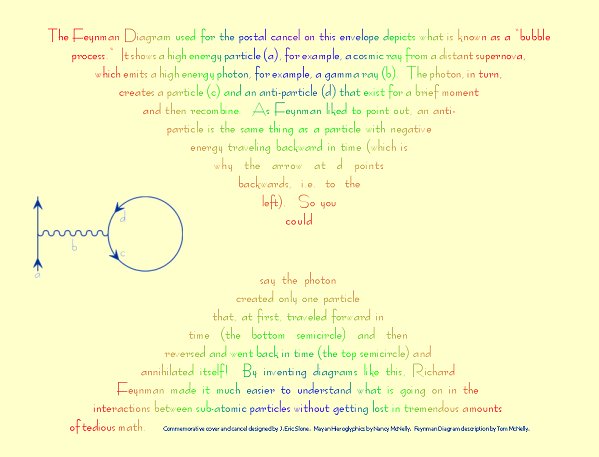 The Feynman Diagram used for the postal cancel on this envelope depicts what is known as a "bubble
process." It shows a high energy particle (a), for example, a cosmic ray from a distant supernova,
which emits a high energy photon, for example, a gamma ray (b). The photon, in turn,
creates a particle (c) and an anti-particle (d) that exist for a brief moment
and then recombine. As Feynman liked to point out, an anti-
particle is the same thing as a particle with negative
energy traveling backward in time (which is
why the arrow at d points
backwards, i.e. to the
left). So you
could
d
b
c
a
say the photon
created only one particle
that, at first, traveled forward in
time (the bottom semicircle) and then
reversed and went back in time (the top semicircle) and
annihilated itself! By inventing diagrams like this, Richard
Feynman made it much easier to understand what is going on in the
interactions between sub-atomic particles without getting lost in tremendous amounts
of tedious math. Commemorative cover and cancel designed by J. Eric Slone. Mayan Hieroglyphics by Nancy McNelly. Feynman Diagram description by Tom McNelly.